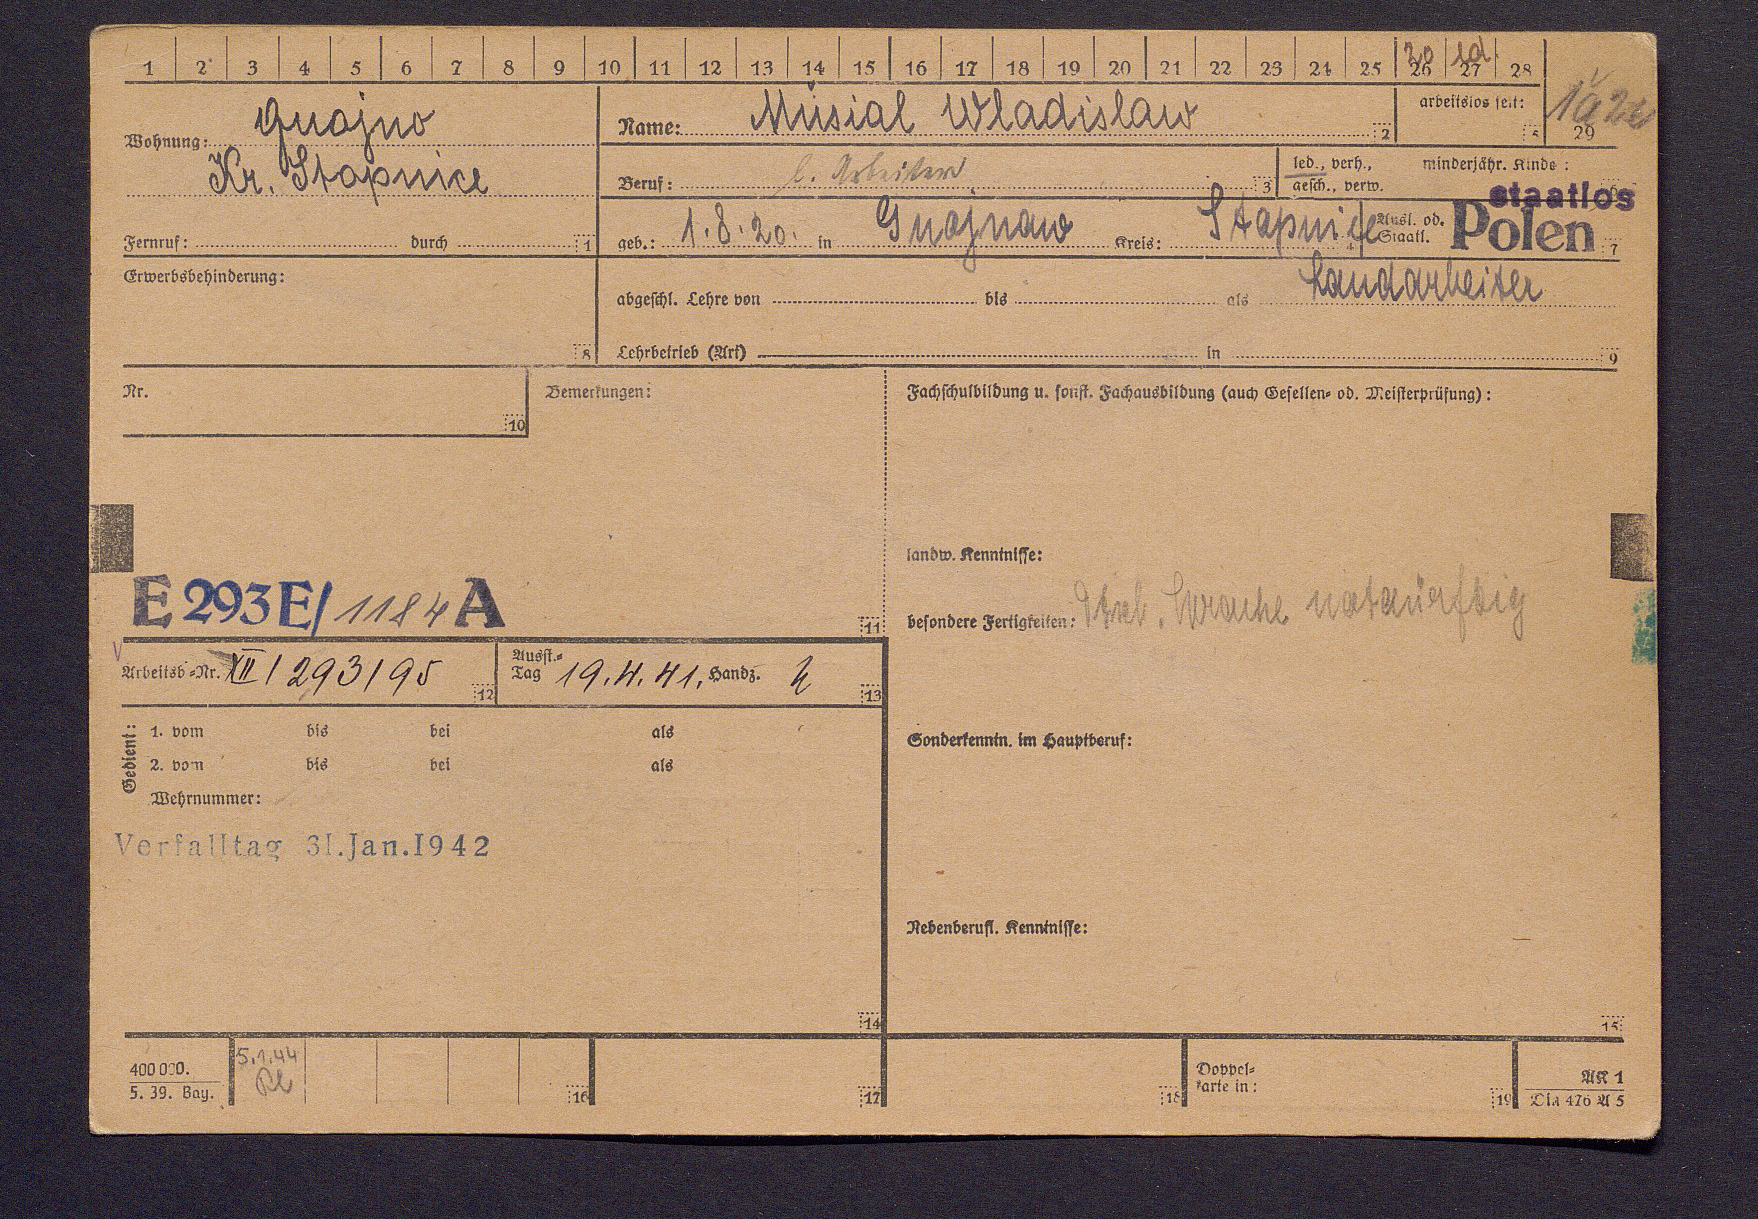 1 2 3 4 5 6 7 8 9 10 11 12 13 14 15 16 17 18 19 20 21 22 23 24 25 26 27 28
20
Wohnung: Gnojno
Kr. Stopnice
Fernruf: durch 1
Name: Musial Wladislaw 2
arbeitslos seit: 5
29
Beruf: l. Arbeiter 3
led., verh., gesch., verw.
minderjähr. Kinder:
geb.: 1.8.20. in Gnojnow Kreis: Stopnice 4
Ausl. od. Staatl.
staatlos
Polen 7
Erwerbsbehinderung: 8
abgeschl. Lehre von bis als Landarbeiter
Lehrbetrieb (Art) in 9
Nr. 10
Bemerkungen:
E 293 E/ 1184 A
11
Fachschulbildung u. sonst. Fachausbildung (auch Gesellen- od. Meisterprüfung):
landw. Kenntnisse:
besondere Fertigkeiten: Sprache notdürftig
Sonderkenntn. im Hauptberuf:
Nebenberufl. Kenntnisse:
15
Arbeitsb.-Nr. XII/293/95 12
Ausst.-Tag 19.4.41. Handz. 13
Gedient:
1. vom bis bei als
2. vom bis bei als
Wehrnummer:
Verfalltag 31.Jan.1942
14
400 000.
5. 39. Bay.
5.1.44
16
17
18
Doppel-
karte in: 19
AK 1
Din 476 A 5